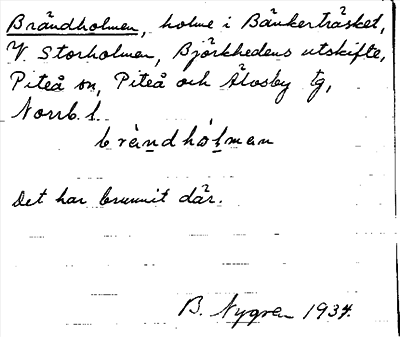 Brändholmen, holme i Bänkerträsket,
V. Storholmen, Björkhedens utskifte,
Piteå sn, Piteå och Älvsby tg,
Norrb. l.
bràndhólman
Det har brunnit där.
B. Nygren 1934.